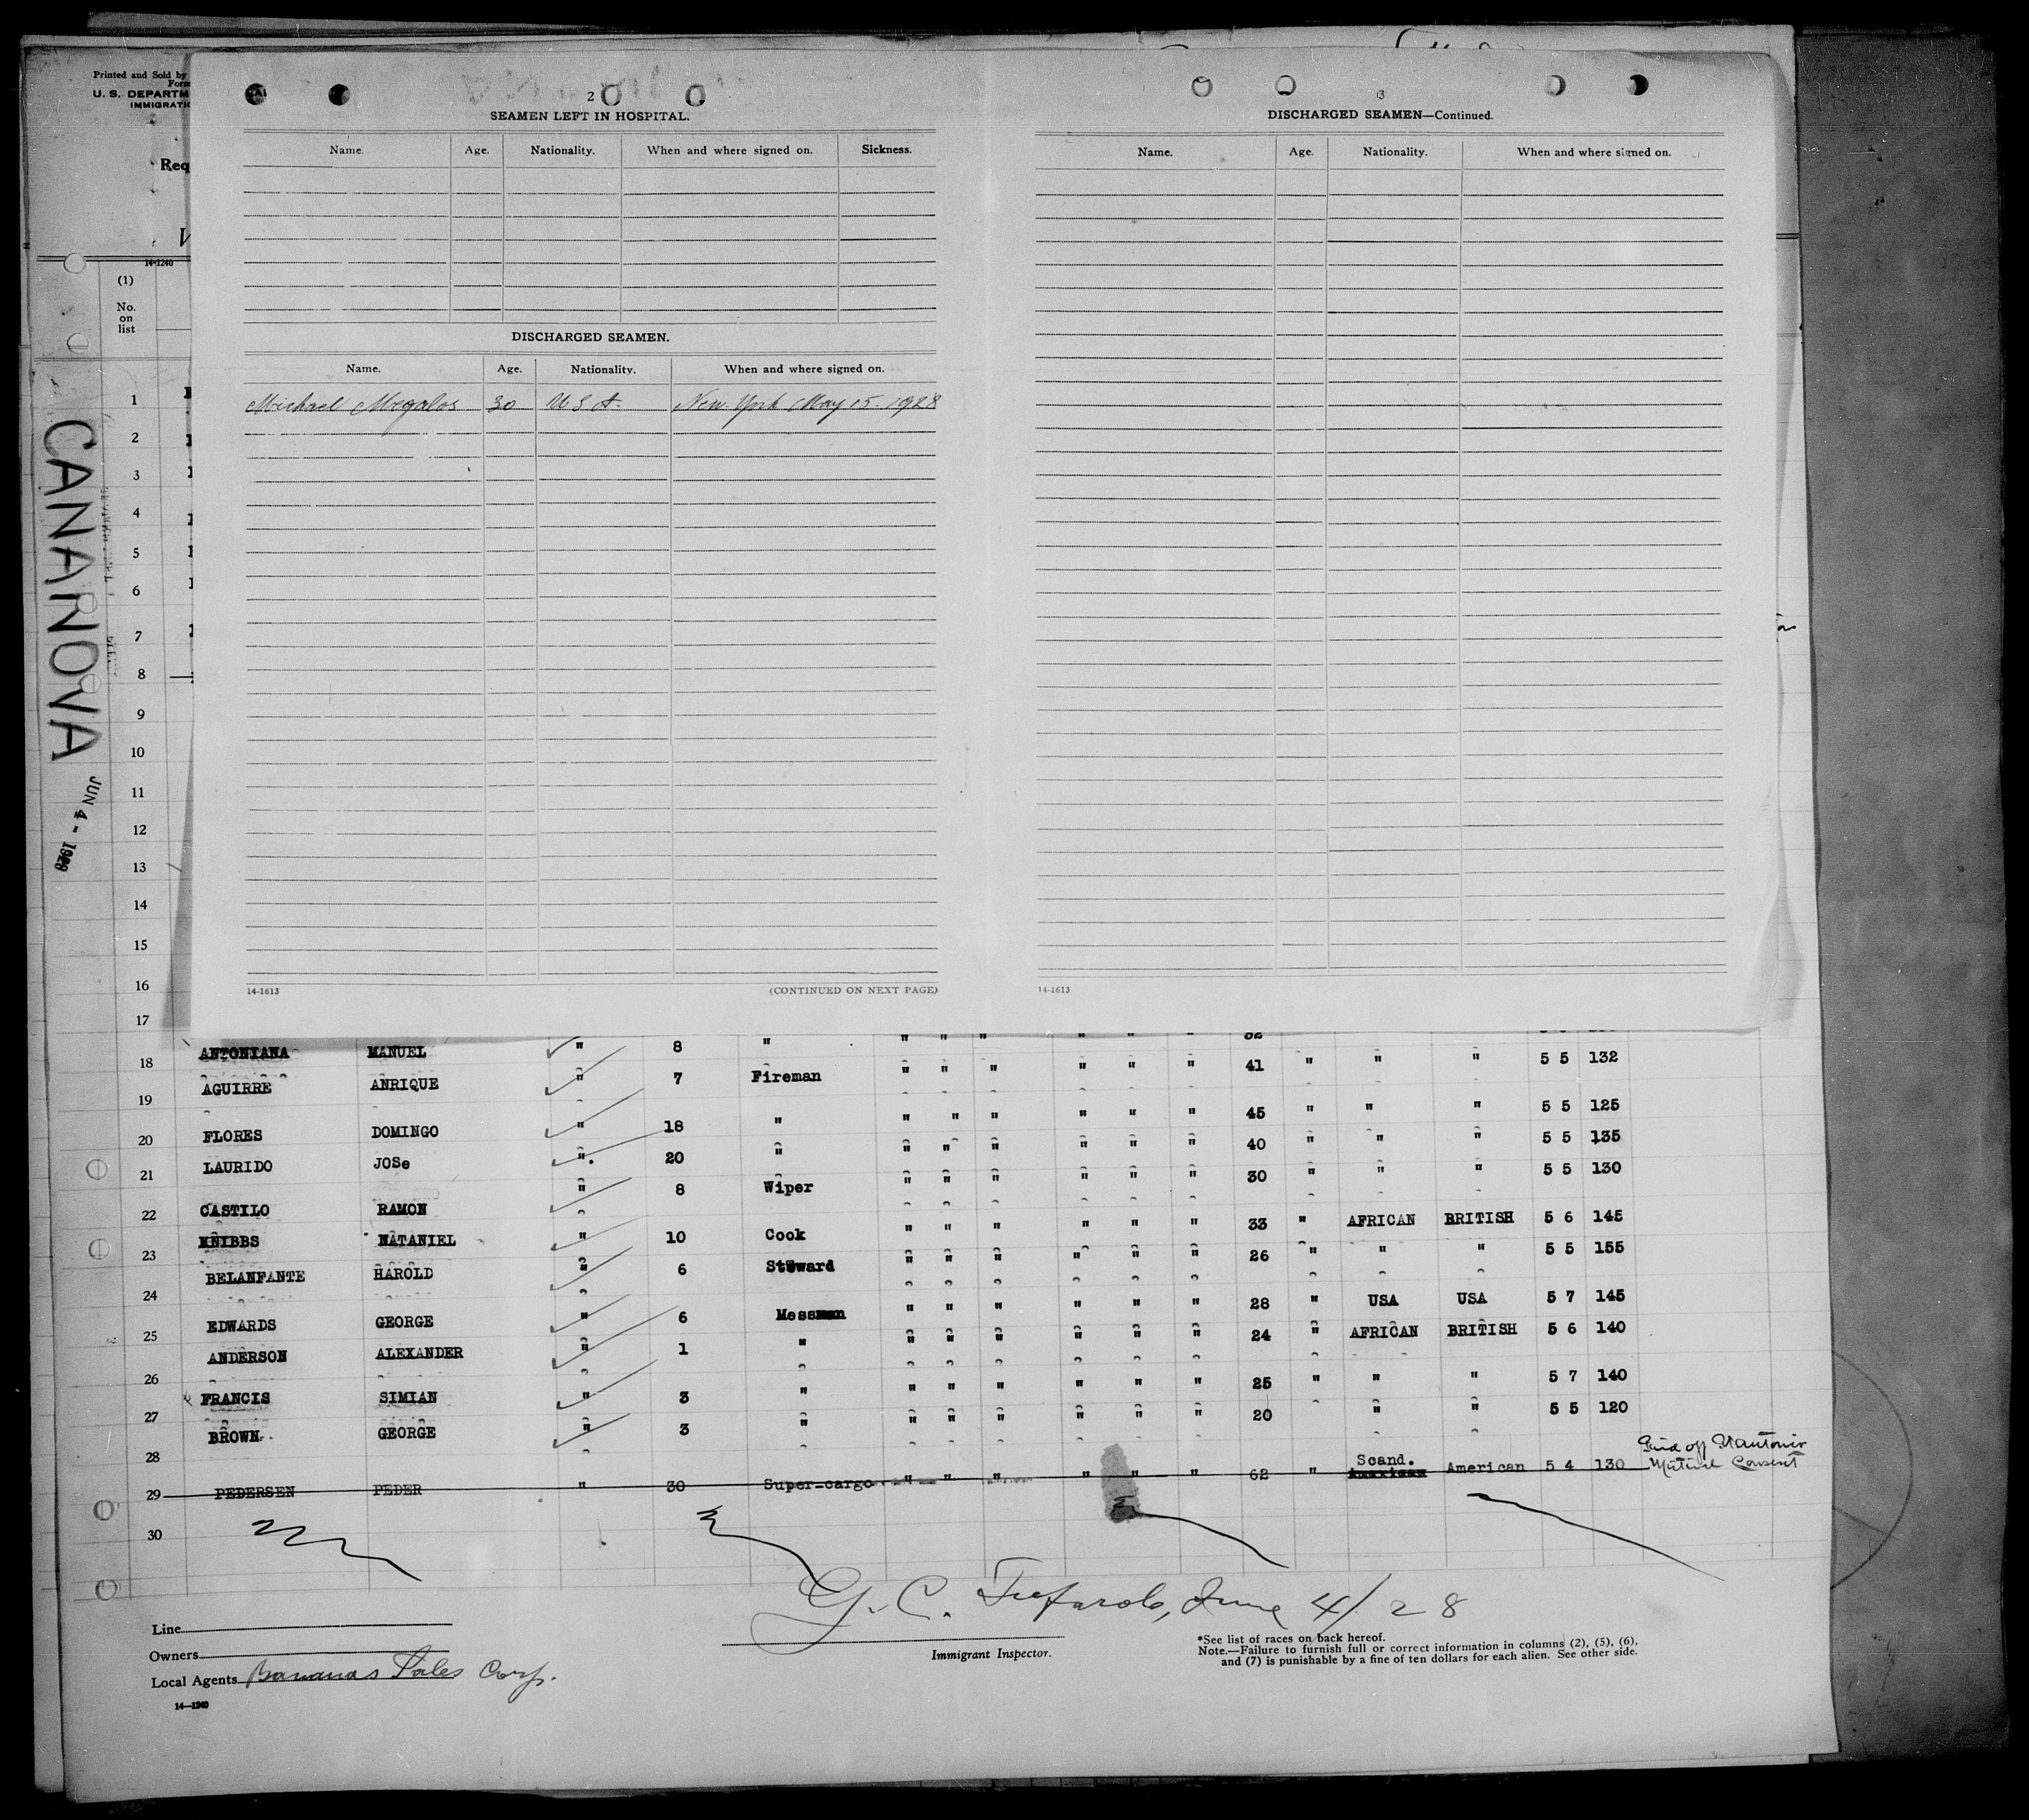 Printed and Sold by
Form
U. S. DEPARTM
IMMIGRATIO
Req
V
14-1240
(1)
No.
on
list
CANANOVA
JUN 4 - 1928
2
SEAMEN LEFT IN HOSPITAL.
Name. Age. Nationality. When and where signed on. Sickness.
DISCHARGED SEAMEN.
Name. Age. Nationality. When and where signed on.
Michael Megalos 30 U S A. New York May 15. 1928
14-1613 (CONTINUED ON NEXT PAGE)
3
DISCHARGED SEAMEN—Continued.
Name. Age. Nationality. When and where signed on.
14-1613
1
2
3
4
5
6
7
8
9
10
11
12
13
14
15
16
17
18 ANTONIANA MANUEL " 8 " " " " " " " 41 " " " 5 5 132
19 AGUIRRE ANRIQUE " 7 Fireman " " " " " " 45 " " " 5 5 125
20 FLORES DOMINGO " 18 " " " " " " " 40 " " " 5 5 135
21 LAURIDO JOSe ". 20 " " " " " " " 30 " " " 5 5 130
22 CASTILO RAMON " 8 Wiper " " " " " " 33 " AFRICAN BRITISH 5 6 145
23 KNIBBS NATANIEL " 10 Cook " " " " " " 26 " " " 5 5 155
24 BELANFANTE HAROLD " 6 Steward " " " " " " 28 " USA USA 5 7 145
25 EDWARDS GEORGE " 6 Messman " " " " " " 24 " AFRICAN BRITISH 5 6 140
26 ANDERSON ALEXANDER " 1 " " " " " " " 25 " " " 5 7 140
27 FRANCIS SIMIAN " 3 " " " " " " " 20 " " 5 5 120
28 BROWN GEORGE " 3 "
29 PEDERSEN PEDER " 30 Super-cargo " " " " " " 62 " Scand. American 5 4 130 Paid off St Antonio
Mutual Consent
30
June 4/28
Line
Owners
Local Agents Bananas Sales Corp.
14—1240
Immigrant Inspector.
*See list of races on back hereof.
Note.—Failure to furnish full or correct information in columns (2), (5), (6),
and (7) is punishable by a fine of ten dollars for each alien. See other side.